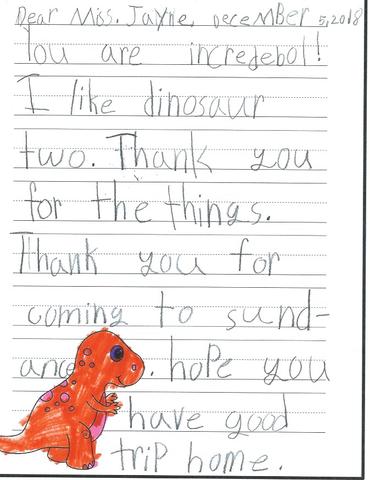 Dear Miss. Jayne, December 5, 2018
You are incredebol!
I like dinosaur
two. Thank you
for the things.
Thank you for
coming to sund-
ance. hope you
have good
trip home.